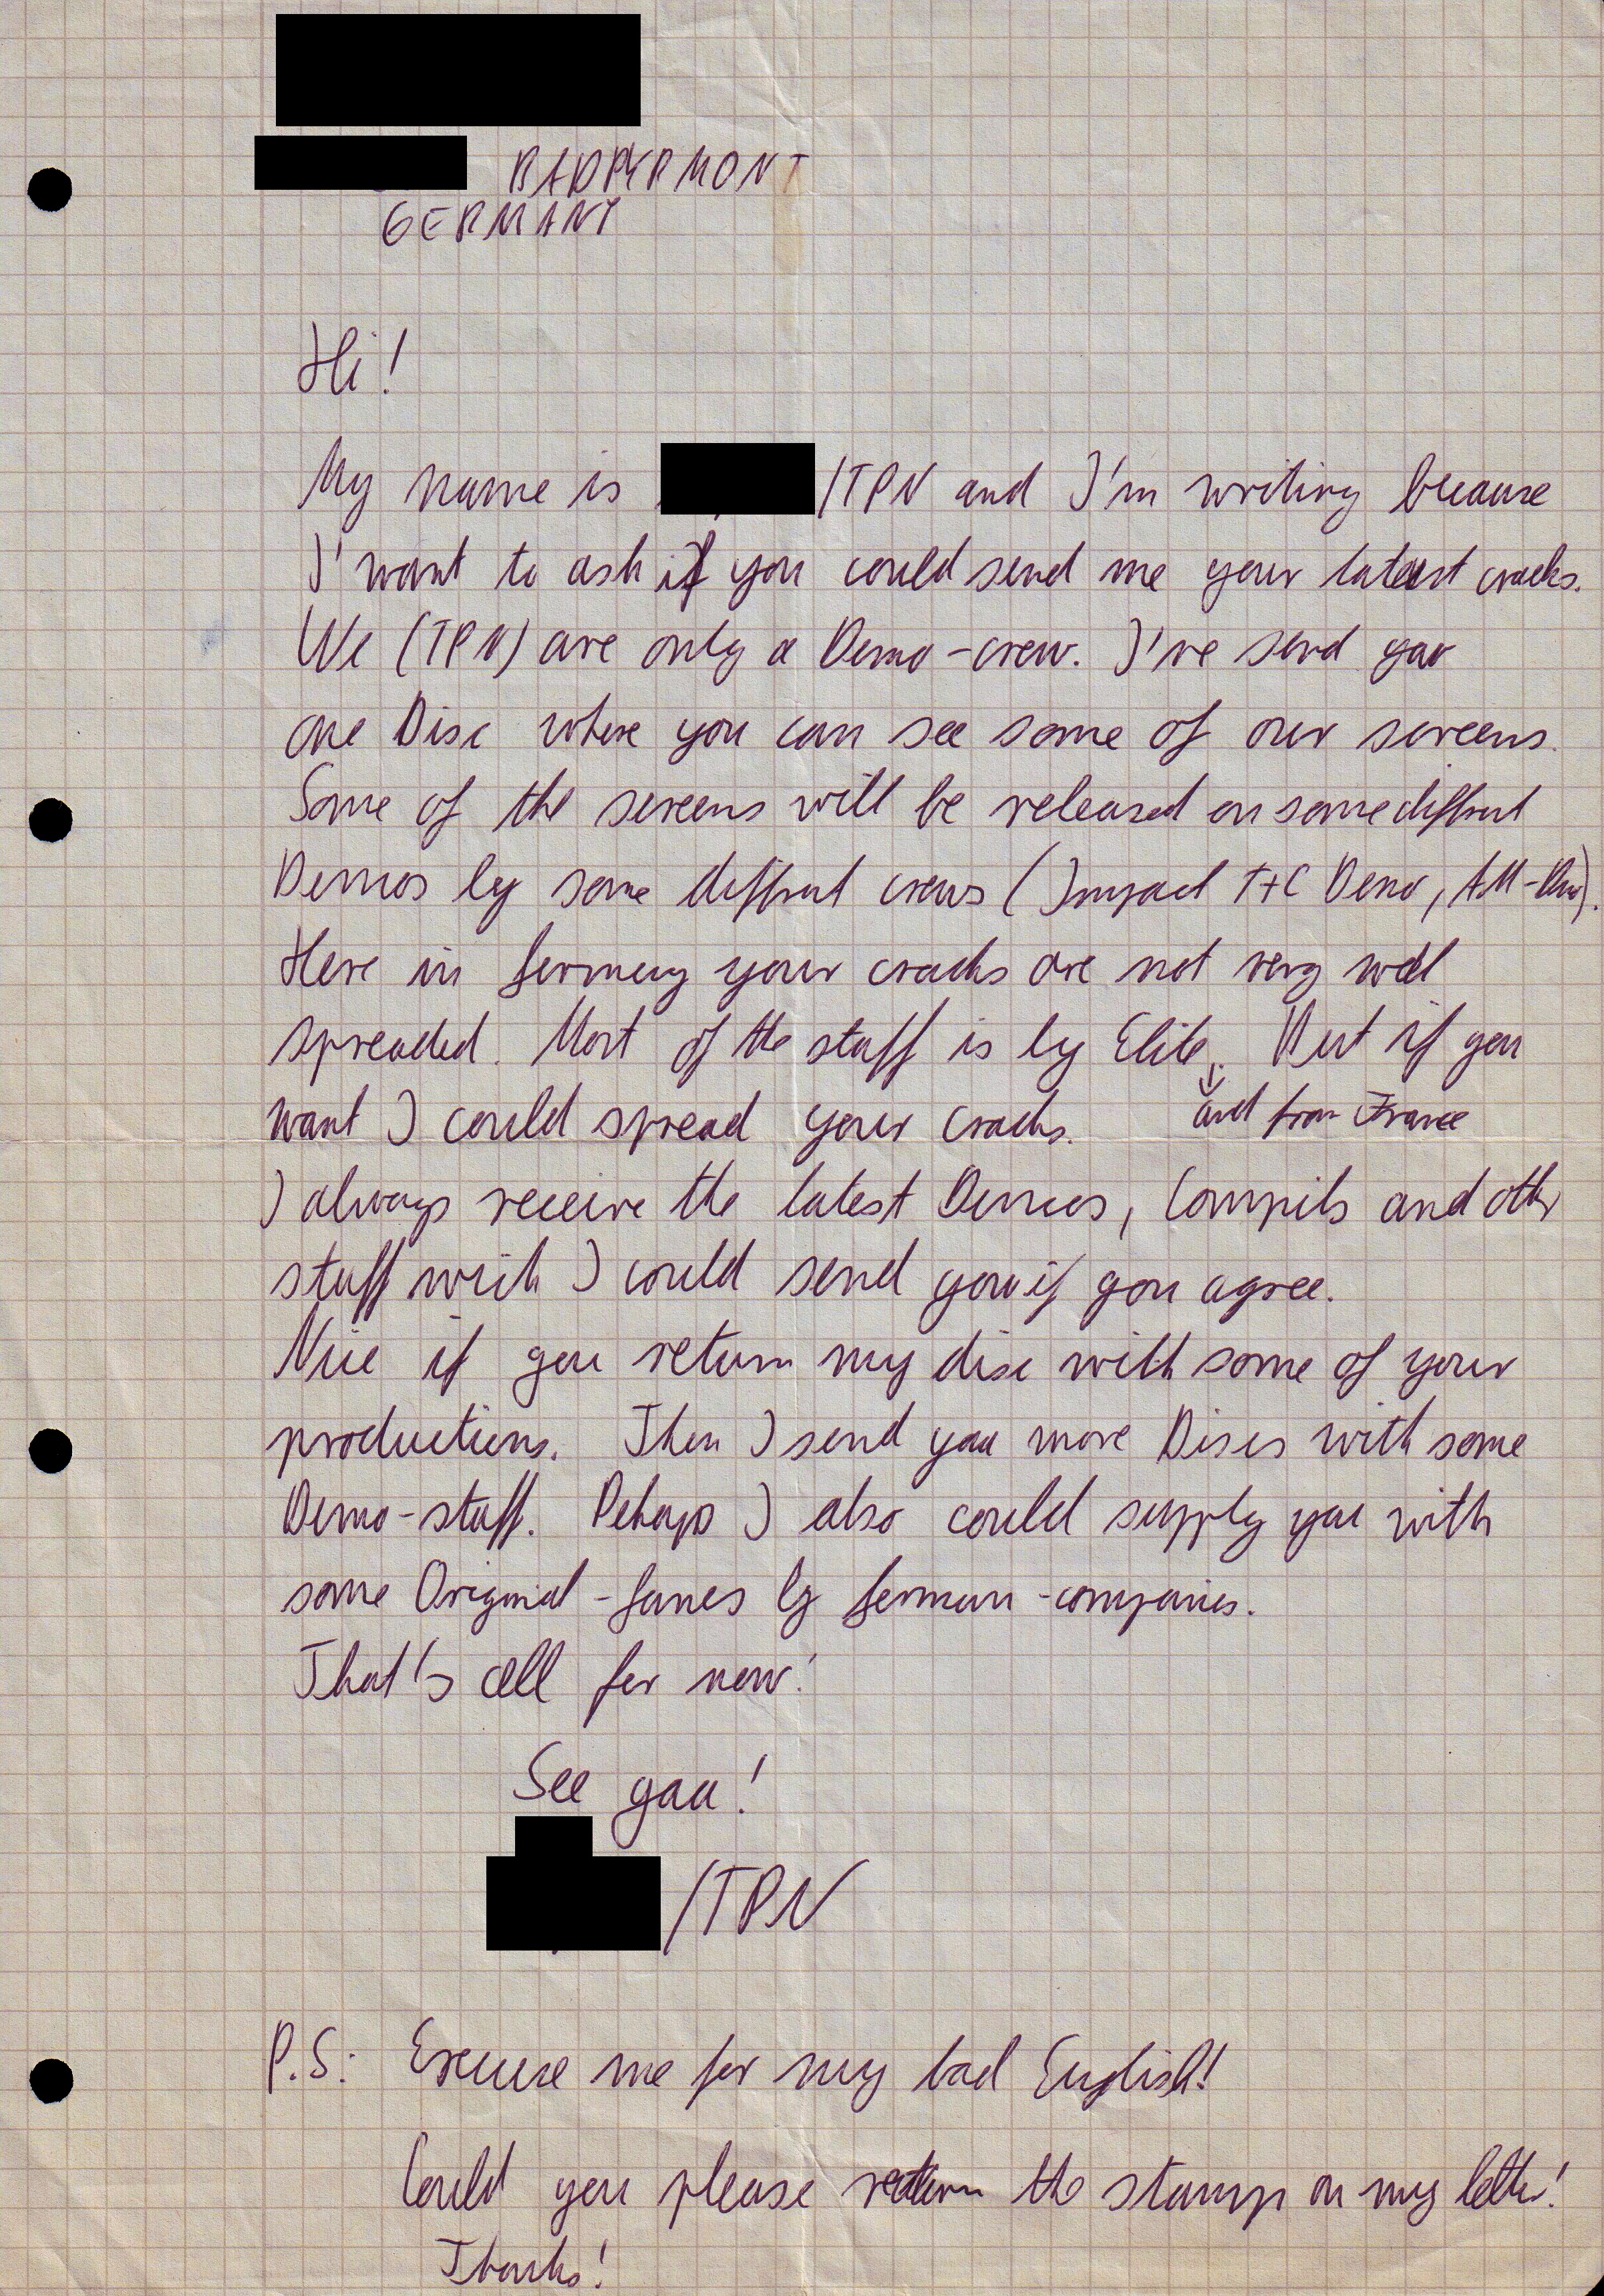 BAD PYRMONT
GERMANY
Hi!
My name is /TPN and I'm writing because
I' want to ask if you could send me your latest cracks.
We (TPN) are only a Demo-crew. I've send you
one Disc where you can see some of our screens.
Some of the screens will be released on some diffrent
Demos by some diffrent crews (Impact T+C Demo, ).
Here in Germany your cracks are not very well
spreaded. Most of the stuff is by Elite. But if you
and from France
want I could spread your cracks.
I always receive the latest Demos, Compils and other
stuff wich I could send you if you agree.
Nice if you return my disc with some of your
productions. Then I send you more Discs with some
Demo-stuff. Pehaps I also could supply you with
some Original-Games by German-companies.
That's all for now!
See yaa!
/TPN
P.S: Excuse me for my bad English!
Could you please return the stamp on my letter!
Thanks!